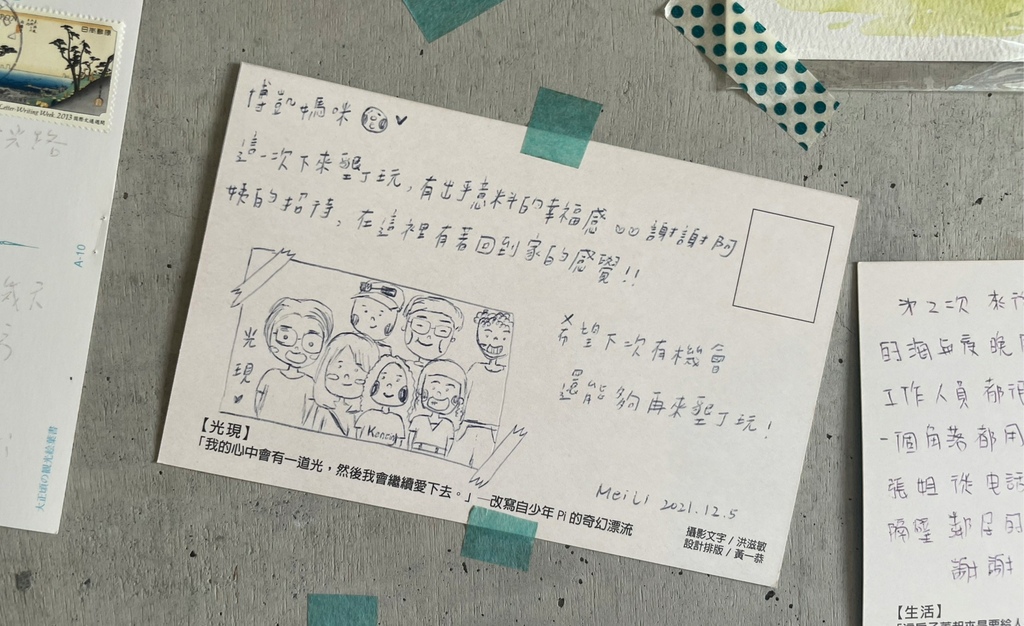 日本郵便
Letter-Writing Week 2013 国際文通週間
A-10
大正頃の観光絵葉書
博凱媽咪
這一次下來墾丁玩,有出乎意料的幸福感 謝謝阿
姨的招待,在這裡有著回到家的感覺!!
希望下次有機會
還能夠再來墾丁玩!
光
現
Kenon
【光現】
「我的心中會有一道光,然後我會繼續愛下去。」—改寫自少年 Pi 的奇幻漂流
MeiLi 2021.12.5
攝影文字 / 洪滋敏
設計排版 / 黃一恭
第2次來
的海岸度晚
工作人員都很
一個角落都用
張姐從電話
隔壁鄰居的
謝謝
【生活】